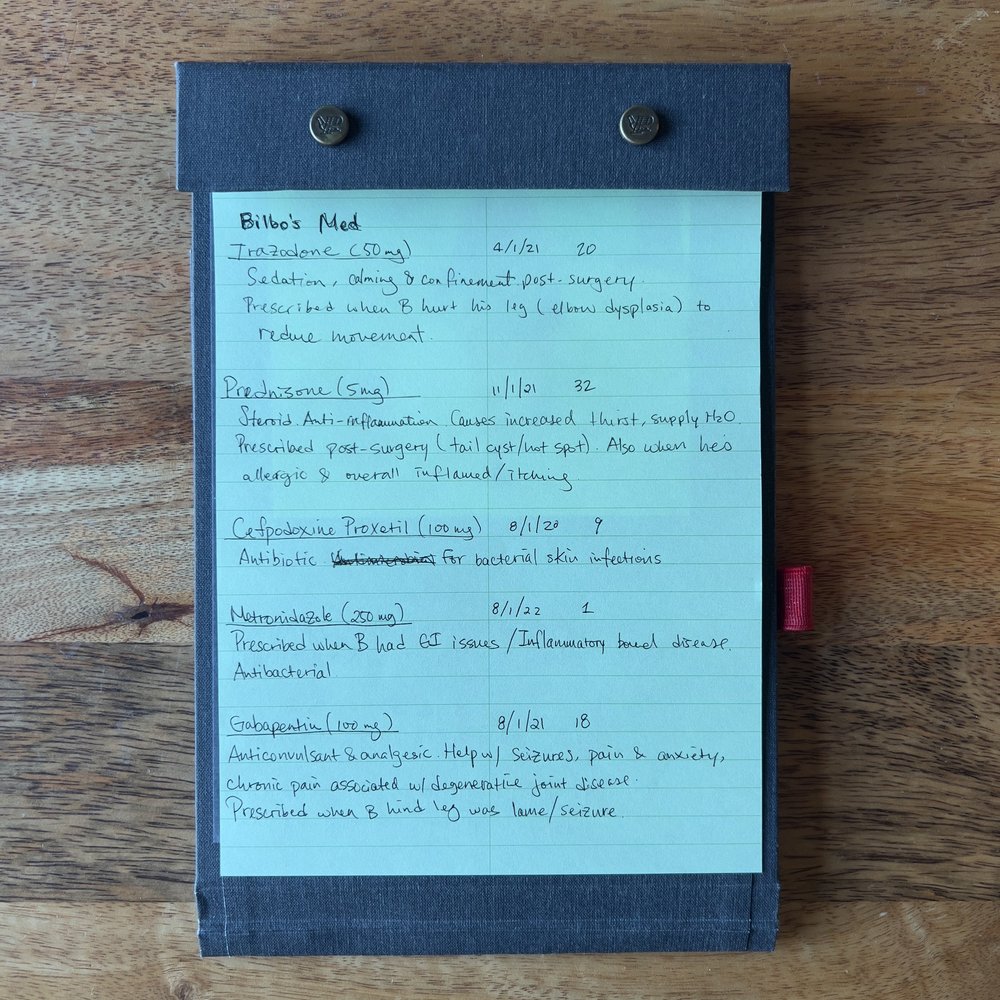 Bilbo's Med
Trazodone (50mg) 4/1/21 20
Sedation, calming & confinement post-surgery.
Prescribed when B hurt his leg (elbow dysplasia) to
reduce movement.
Prednisone (5mg) 11/1/21 32
Steroid. Anti-inflammation. Causes increased thirst, supply H2O.
Prescribed post-surgery (tail cyst/hot spot). Also when he's
allergic & overall inflamed/itching.
Cefpodoxine Proxetil (100mg) 8/1/20 9
Antibiotic for bacterial skin infections
Metronidazole (250mg) 8/1/22 1
Prescribed when B had GI issues / Inflammatory bowel disease.
Antibacterial
Gabapentin (100mg) 8/1/21 18
Anticonvulsant & analgesic. Help w/ seizures, pain & anxiety,
chronic pain associated w/ degenerative joint disease.
Prescribed when B hind leg was lame/seizure.